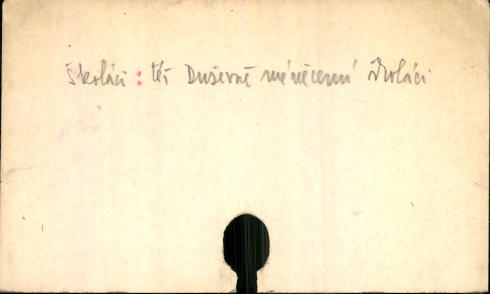 školáci : též Duševně méněcenní školáci